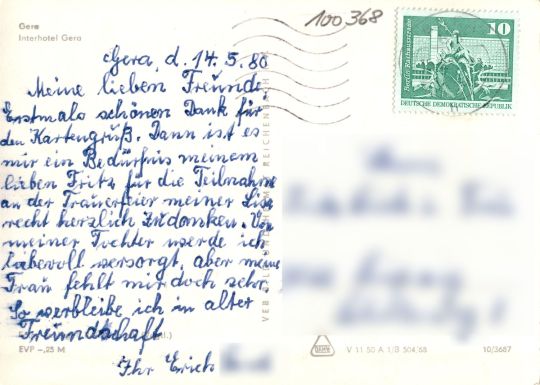 Gera
Interhotel Gera
100 368
Gera, d. 14.5.80
Meine lieben Freunde.
Erstmals schönen Dank für
den Kartengruß. Dann ist es
mir ein Bedürfnis meinem
lieben Fritz für die Teilnahme
an der Trauerfeier meiner Lisa
recht herzlich zudanken. Von
meiner Tochter werde ich
liebevoll versorgt, aber meine
Frau fehlt mir doch sehr.
So verbleibe ich in alter
Freundschaft
Ihr Erich
EVP -,25 M
VEB REICHENBACH
V 11 50 A 1/B 504/68
10/3687
Berlin Rathausstraße
10
DEUTSCHE DEMOKRATISCHE REPUBLIK